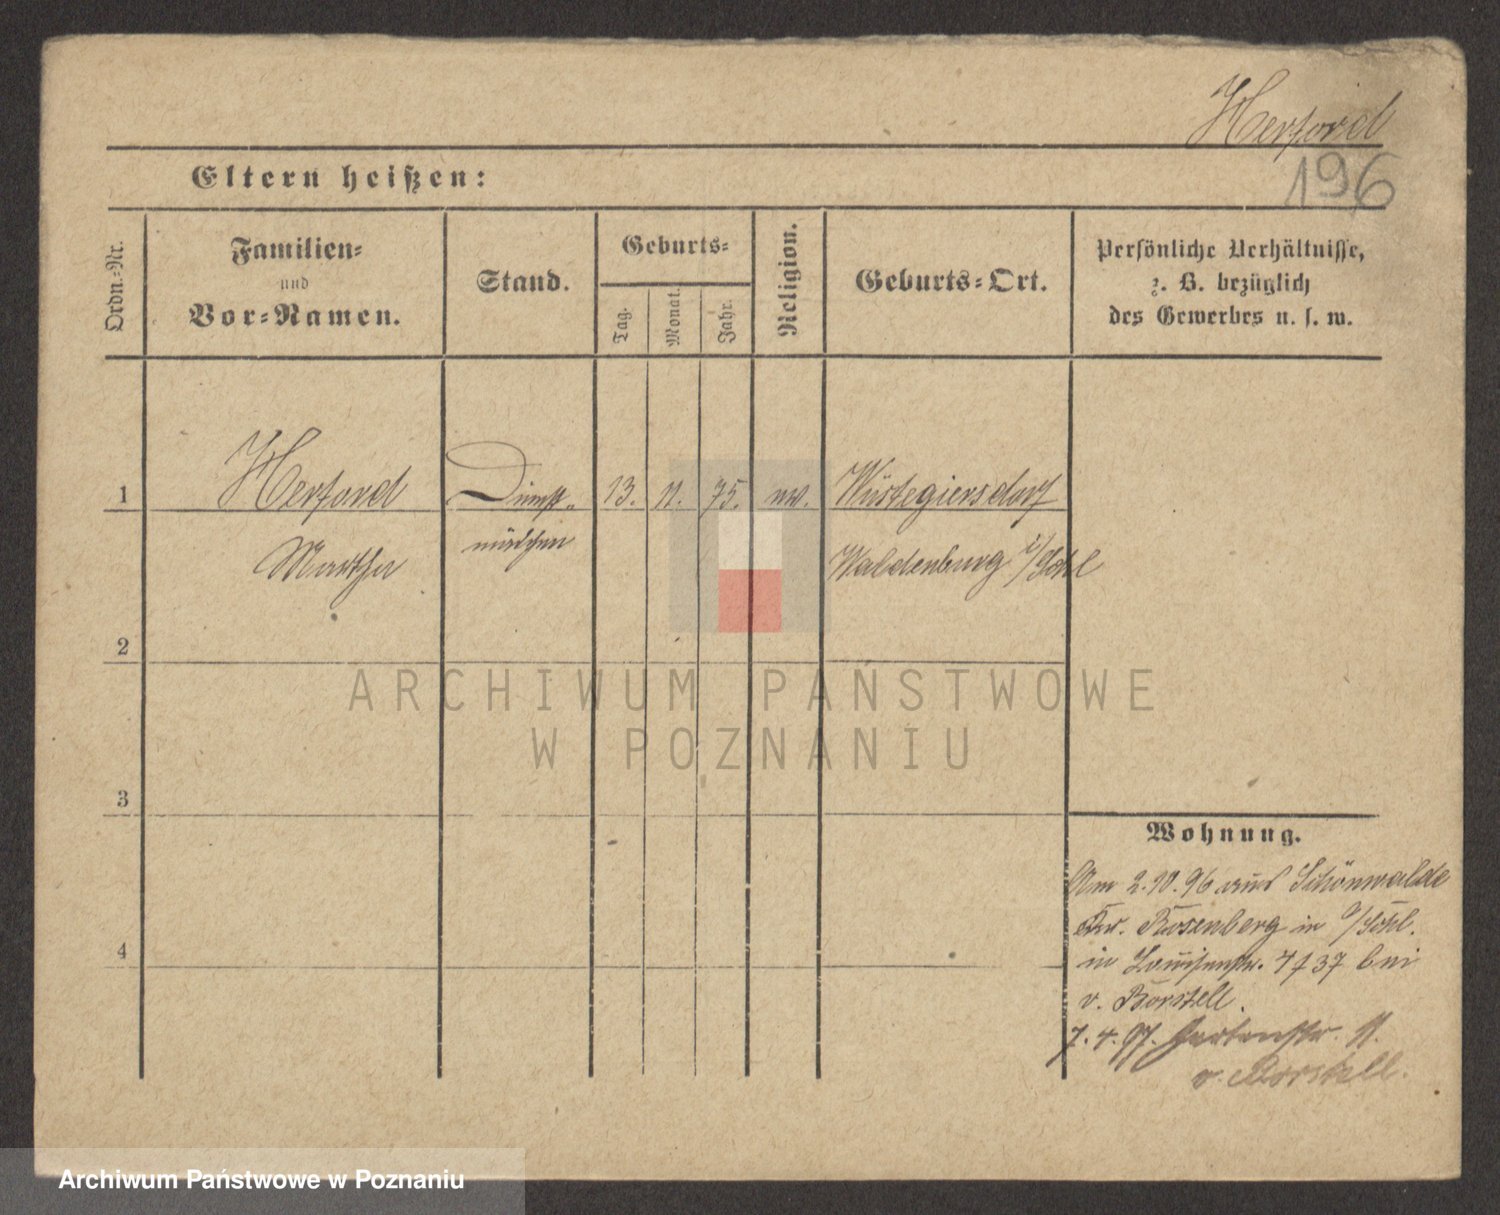 Herford
196
Eltern heißen:
Ordn.-Nr.
Familien-
und
Vor-Namen.
Stand.
Geburts-
Tag.
Monat.
Jahr.
Religion.
Geburts-Ort.
Persönliche Verhältnisse,
z. B. bezüglich
des Gewerbes u. s. w.
1
Herford
Martha
Dienst-
mädchen
13.
11.
75.
ev.
Wüstegiersdorf
Waldenburg i/Schl
2
3
4
Wohnung.
Am 2.10.96 aus Schönwalde
Kr. Rosenberg in O/Schl.
in Louisenstr. 7 f 37 bei
v. Borstell.
7.4.97. Gartenstr. 11.
v. Borstell.
ARCHIWUM PAŃSTWOWE
W POZNANIU
Archiwum Państwowe w Poznaniu